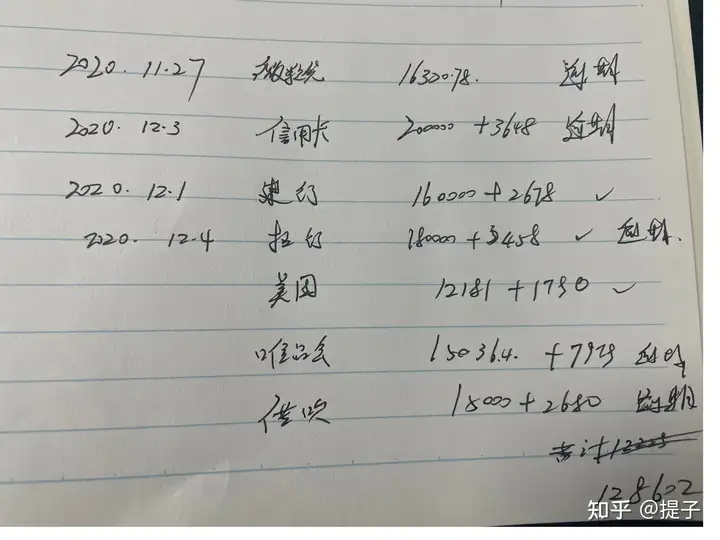 2020. 11.27 微粒贷 16320.78. 逾期
2020. 12.3 信用卡 200000 +3648 逾期
2020. 12.1 建行 160000+2678 ✓
2020. 12.4 招行 180000+3458 ✓ 逾期.
美团 12181 +1790 ✓
唯品会 15036.4. +7979 逾期
借呗 18000+2680 逾期
128602
知乎 @提子